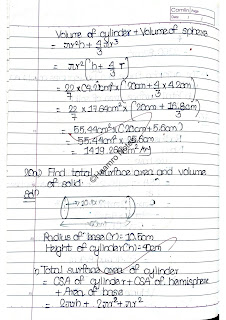 Camlin Page
Date
Volume of cylinder + Volume of sphere
= πr²h + 4/3 πr³
= πr² (h + 4/3 r)
= 22/7 × (4.2cm)² × (20cm + 4/3 × 4.2cm)
= 22/7 × 17.64cm² × (20cm + 16.8cm/3)
= 55.44cm² × (20cm + 5.6cm)
= 55.44cm² × 25.6cm
= 1419.26cm³
Find total surface area and volume
of solid.
Solⁿ
Radius of base (r) = 10.5cm
Height of cylinder (h) = 40cm
Total surface area of cylinder
= CSA of cylinder + CSA of hemisphere
+ Area of base
= 2πrh + 2πr² + πr²